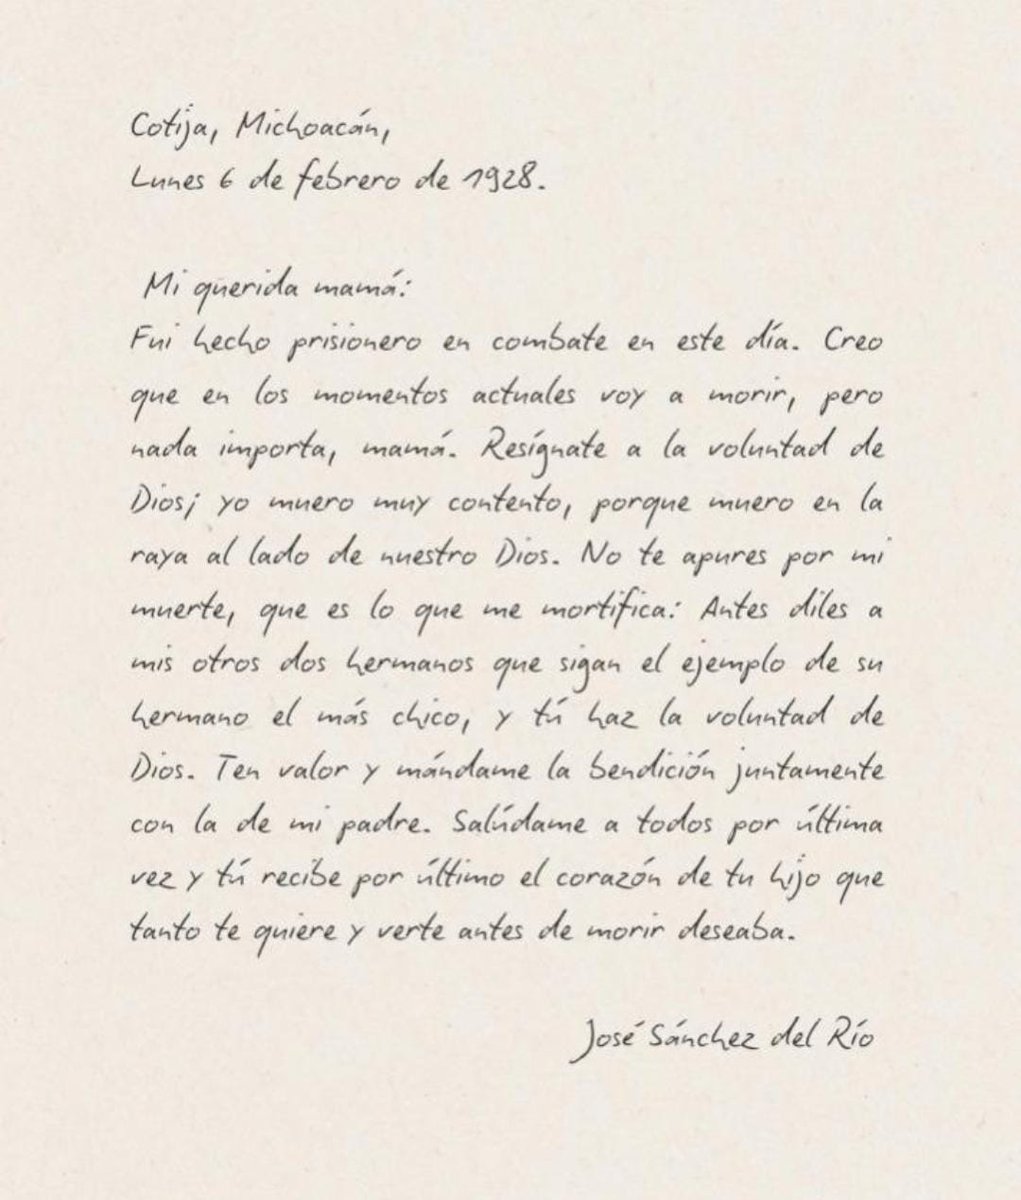 Cotija, Michoacán,
Lunes 6 de febrero de 1928.
Mi querida mamá:
Fui hecho prisionero en combate en este día. Creo
que en los momentos actuales voy a morir, pero
nada importa, mamá. Resígnate a la voluntad de
Dios; yo muero muy contento, porque muero en la
raya al lado de nuestro Dios. No te apures por mi
muerte, que es lo que me mortifica: Antes diles a
mis otros dos hermanos que sigan el ejemplo de su
hermano el más chico, y tú haz la voluntad de
Dios. Ten valor y mándame la bendición juntamente
con la de mi padre. Salúdame a todos por última
vez y tú recibe por último el corazón de tu hijo que
tanto te quiere y verte antes de morir deseaba.
José Sánchez del Río